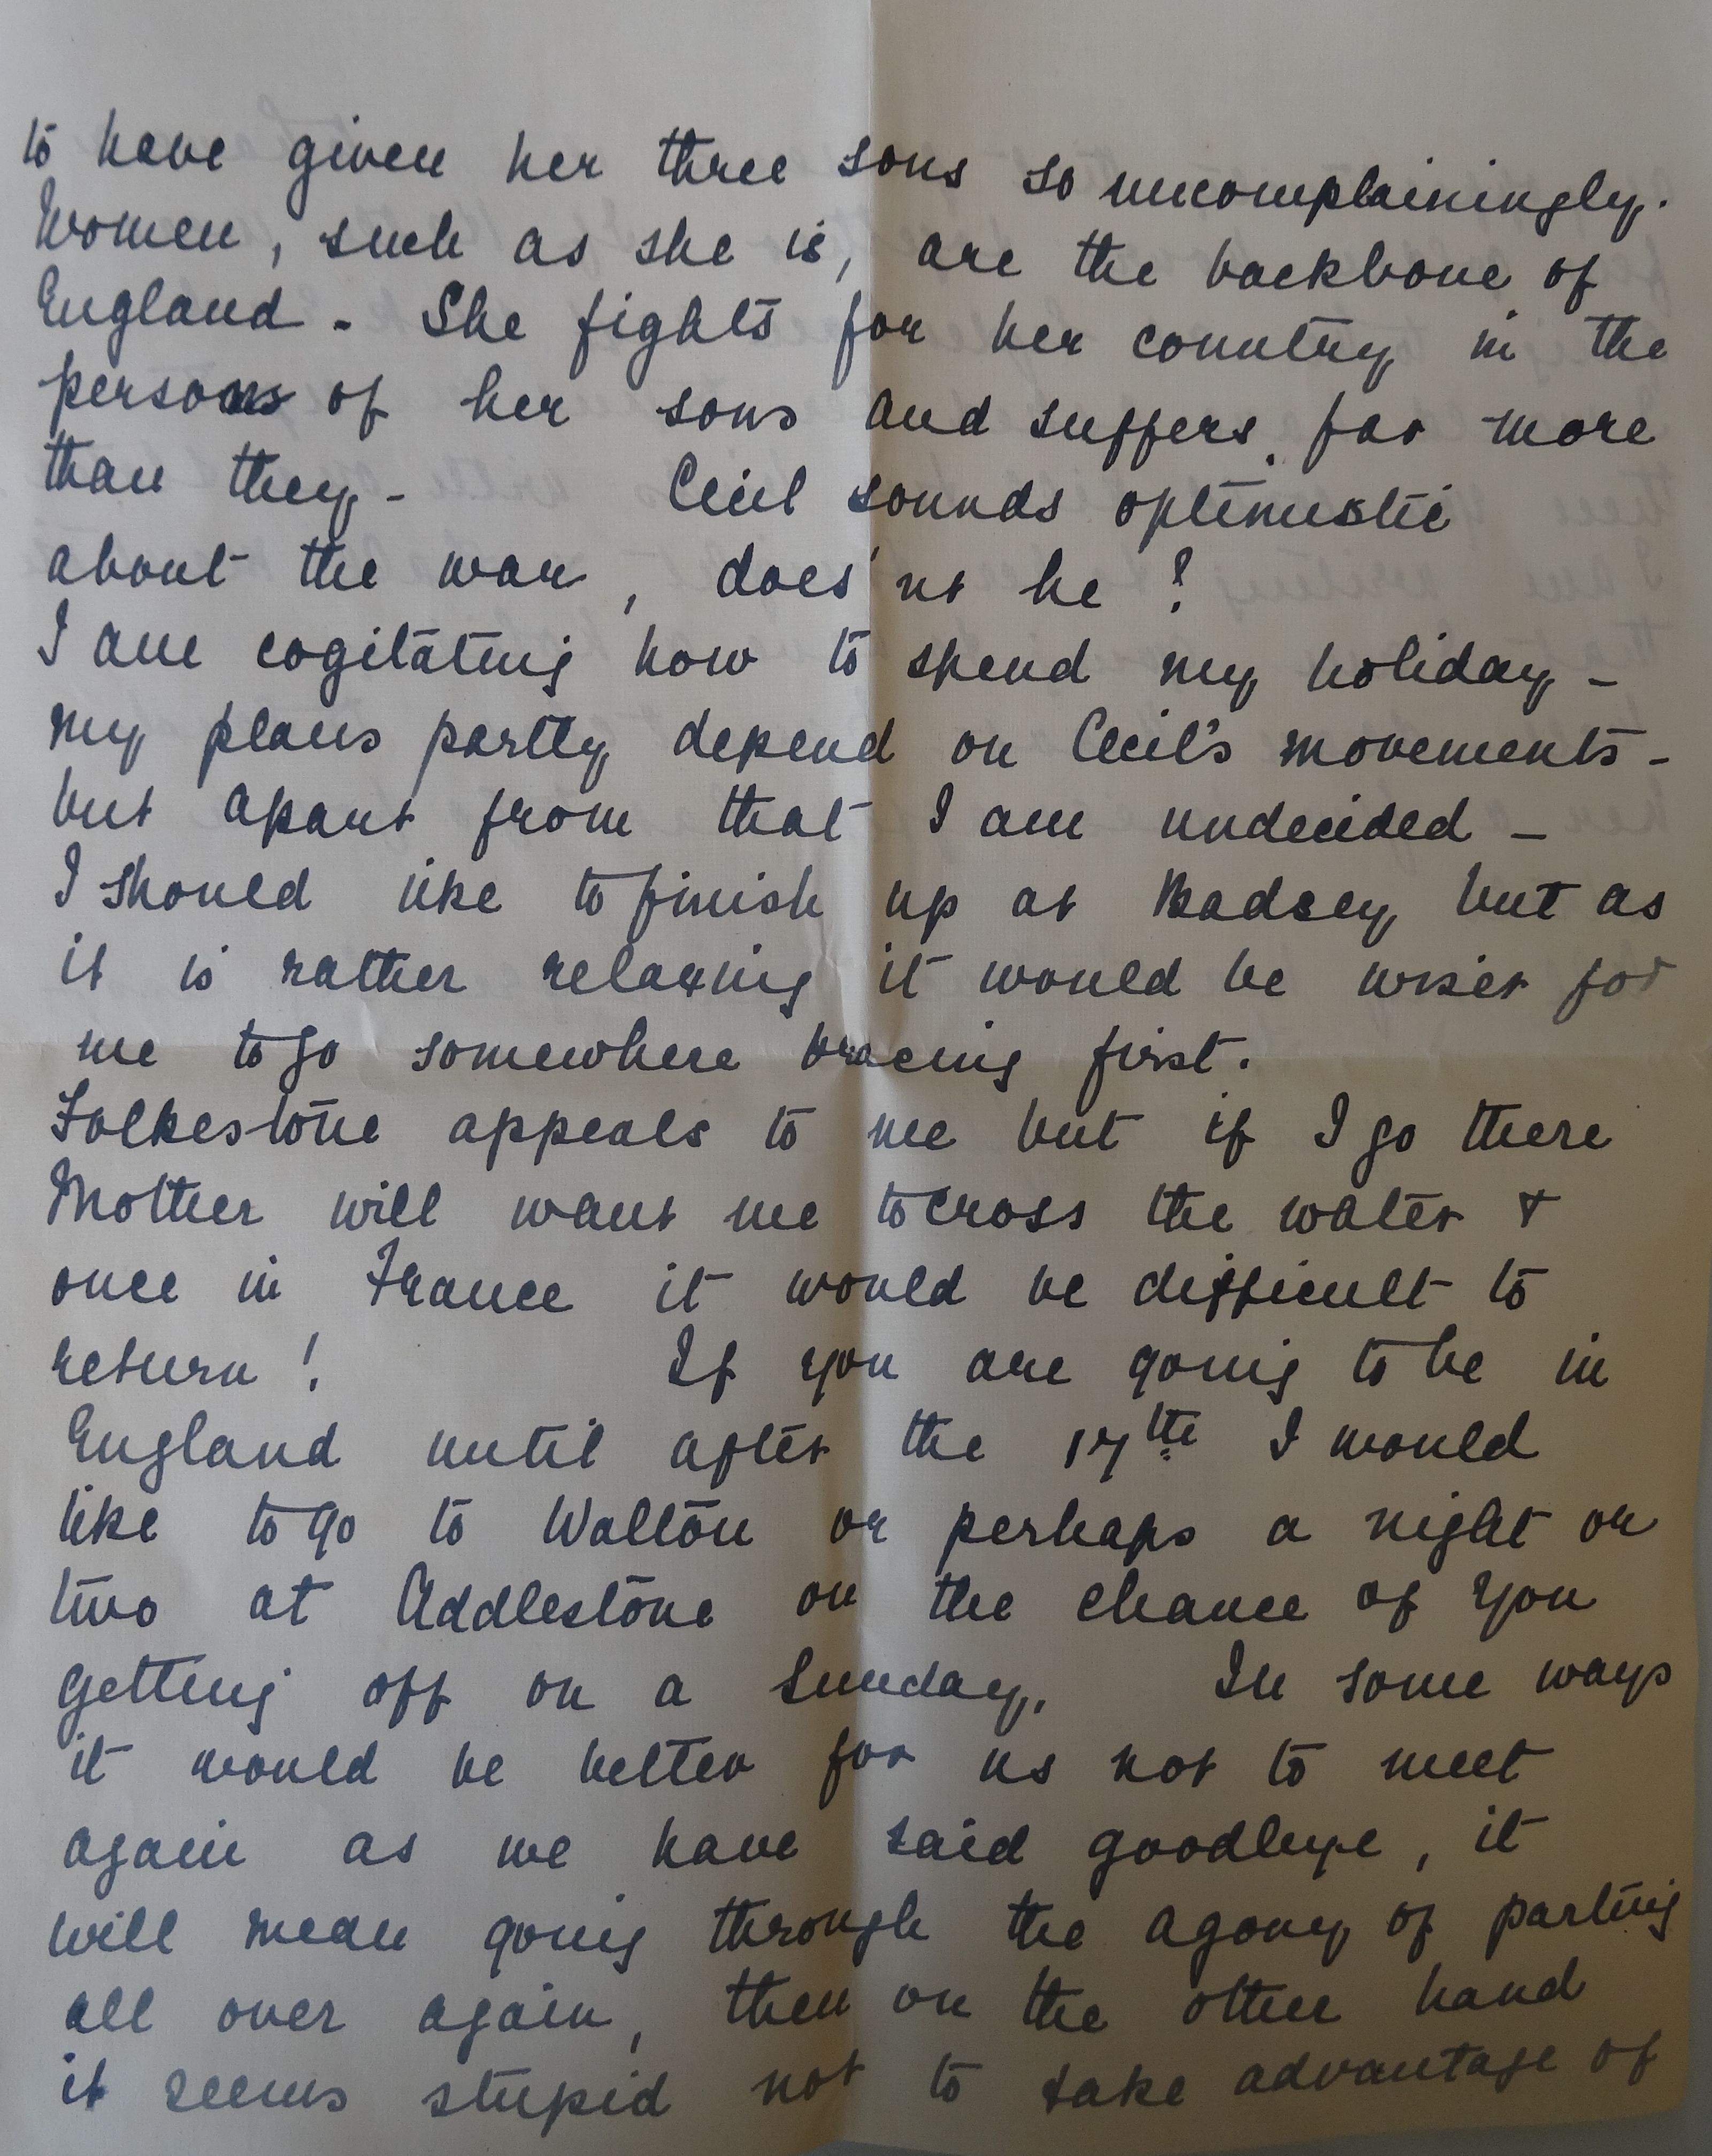 to have given her three sons so uncomplainingly.
Women, such as she is, are the backbone of
England - She fights for her country in the
persons of her sons and suffers far more
than they - Cecil sounds optimistic
about the war, does'nt he?
I am cogitating how to spend my holiday -
my plans partly depend on Cecil's movements -
but apart from that I am undecided -
I should like to finish up at Badsey but as
it is rather relaxing it would be wiser for
me to go somewhere bracing first.
Folkestone appeals to me but if I go there
Mother will want me to cross the water &
once in France it would be difficult to
return! If you are going to be in
England until after the 17th I would
like to go to Walton or perhaps a night or
two at Addlestone on the chance of you
getting off on a Sunday. In some ways
it would be better for us not to meet
again as we have said goodbye, it
will mean going through the agony of parting
all over again, then on the other hand
it seems stupid not to take advantage of